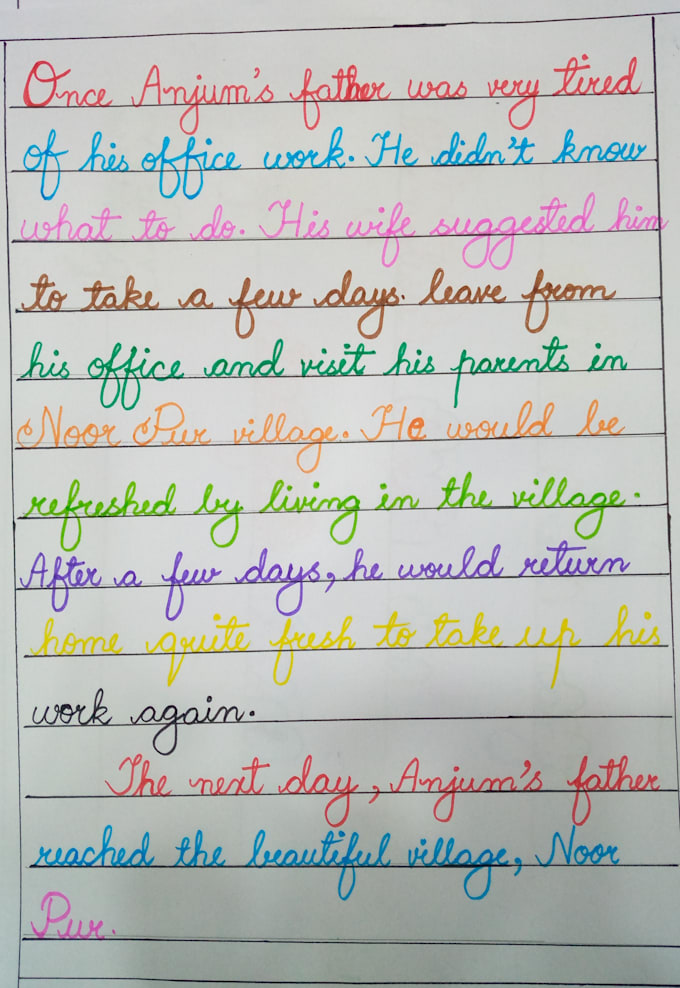 Once Anjum's father was very tired
of his office work. He didn't know
what to do. His wife suggested him
to take a few days. leave from
his office and visit his parents in
Noor Pur village. He would be
refreshed by living in the village.
After a few days, he would return
home quite fresh to take up his
work again.
The next day, Anjum's father
reached the beautiful village, Noor
Pur.